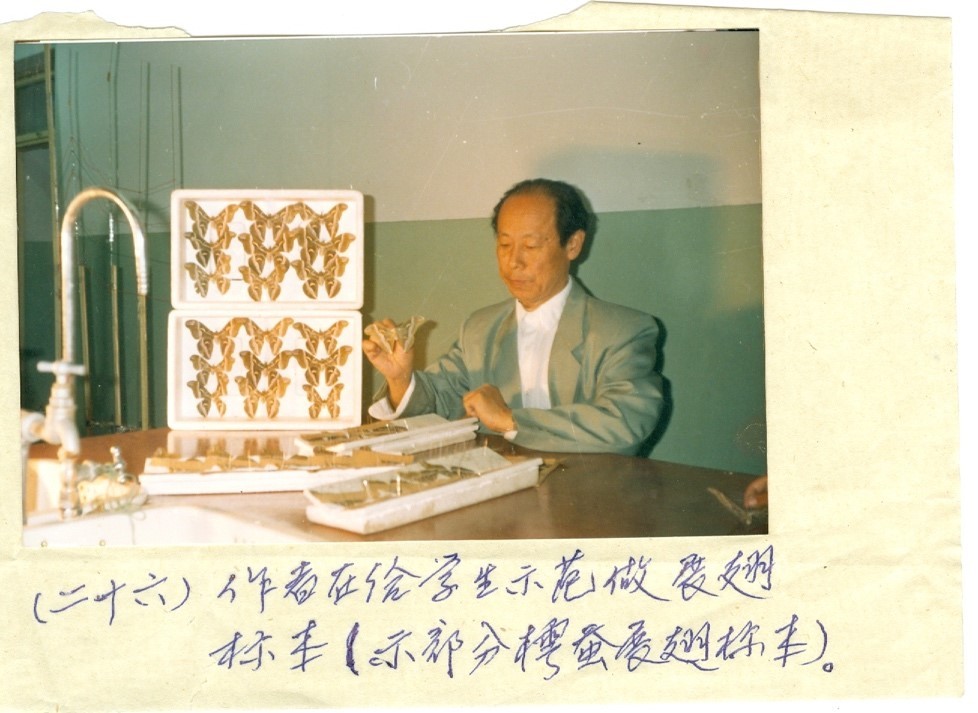 (二十六) 作者在给学生示范做展翅
标本(示部分樗蚕展翅标本)。